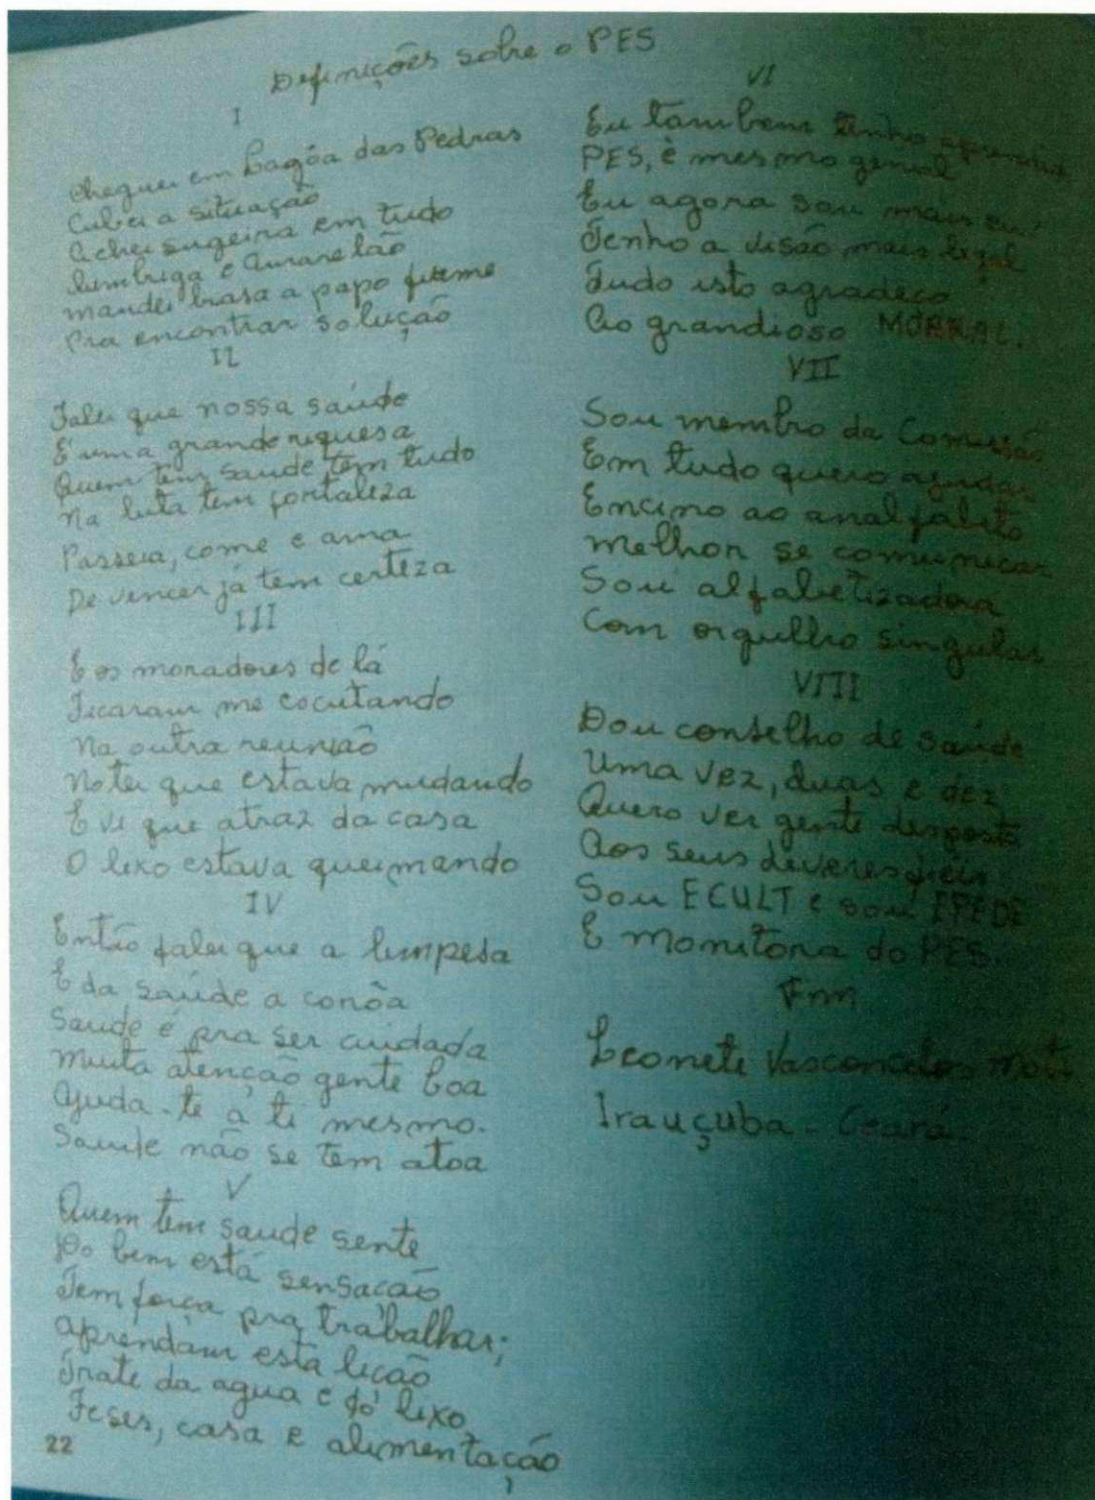 Definições sobre o PES
I
Cheguei em Lagôa das Pedras
Cubei a situação
Achei sugeira em tudo
lumbriga e amarelão
mandei brasa a papo firme
Pra encontrar solução
II
Falei que nossa saúde
É uma grande riquesa
Quem tem saude tem tudo
Na luta tem fortaleza
Passeia, come e ama
De vencer já tem certeza
III
E os moradores de lá
Ficaram me escutando
Na outra reunião
Notei que estava mudando
E vi que atraz da casa
O lixo estava queimando
IV
Então falei que a limpesa
É da saúde a corôa
Saude é pra ser cuidada
Muita atenção gente boa
Ajuda-te a ti mesmo.
Saude não se tem atoa
V
Quem tem saude sente
Do bem está sensacão
Tem força pra trabalhar;
Aprendam esta licão
Trate da agua e do lixo
Feses, casa e alimentação
22
VI
Eu tambem tenho aprendido
PES, é mesmo genial
Eu agora sou mais eu
Tenho a visão mais legal
Tudo isto agradeço
Ao grandioso MOBRAL.
VII
Sou membro da Comissão
Em tudo quero ajudar
Encino ao analfabeto
Melhor se comunicar
Sou alfabetizadora
Com orgulho singular
VIII
Dou conselho de saúde
Uma vez, duas e dez
Quero ver gente disposta
Aos seus deveres fiéis
Sou ECULT e sou
E monitora do PES.
Fim
Leonete Vasconcelos Mota
Irauçuba - Ceará.